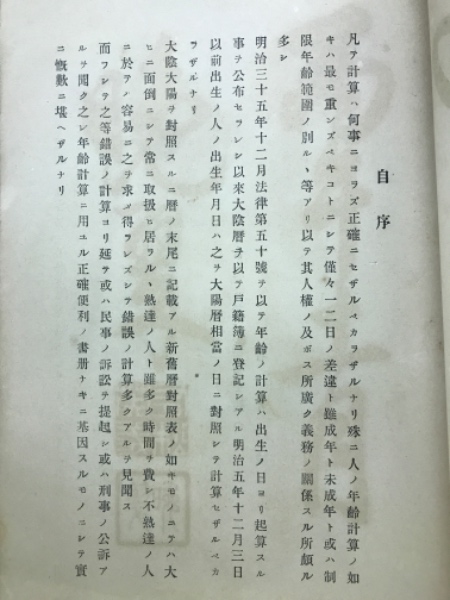 自序
凡テ計算ハ何事ニヨラズ正確ニセザルベカラザルナリ殊ニ人ノ年齡計算ノ如
キハ最モ重ンズベキコトニシテ僅々一二日ノ差違ト雖成年ト未成年ト或ハ制
限年齡範圍ノ別ルヽ等アリ以テ其人權ノ及ボス所廣ク義務ノ關係スル所頗ル
多シ
明治三十五年十二月法律第五十號ヲ以テ年齡ノ計算ハ出生ノ日ヨリ起算スル
事ヲ公布セラレシ以來大陰曆ヲ以テ戸籍簿ニ登記シアル明治五年十二月三日
以前出生ノ人ノ出生年月日ハ之ヲ大陽曆相當ノ日ニ對照シテ計算セザルベカ
ラザルナリ
大陰大陽ヲ對照スルニ曆ノ末尾ニ記載アル新舊曆對照表ノ如キモノニテハ大
ヒニ面倒ニシテ常ニ取扱ヒ居ラルヽ熟達ノ人ト雖多ク時間ヲ費シ不熟達ノ人
ニ於テハ容易ニ之ヲ求メ得ラレズシテ錯誤ノ計算多クアルヲ見聞ス
而フシテ之等錯誤ノ計算ヨリ延テ或ハ民事ノ訴訟ヲ提起シ或ハ刑事ノ公訴ア
ルヲ聞ク之レ年齡計算ニ用ユル正確便利ノ書册ナキニ基因スルモノニシテ實
ニ慨歎ニ堪ヘザルナリ